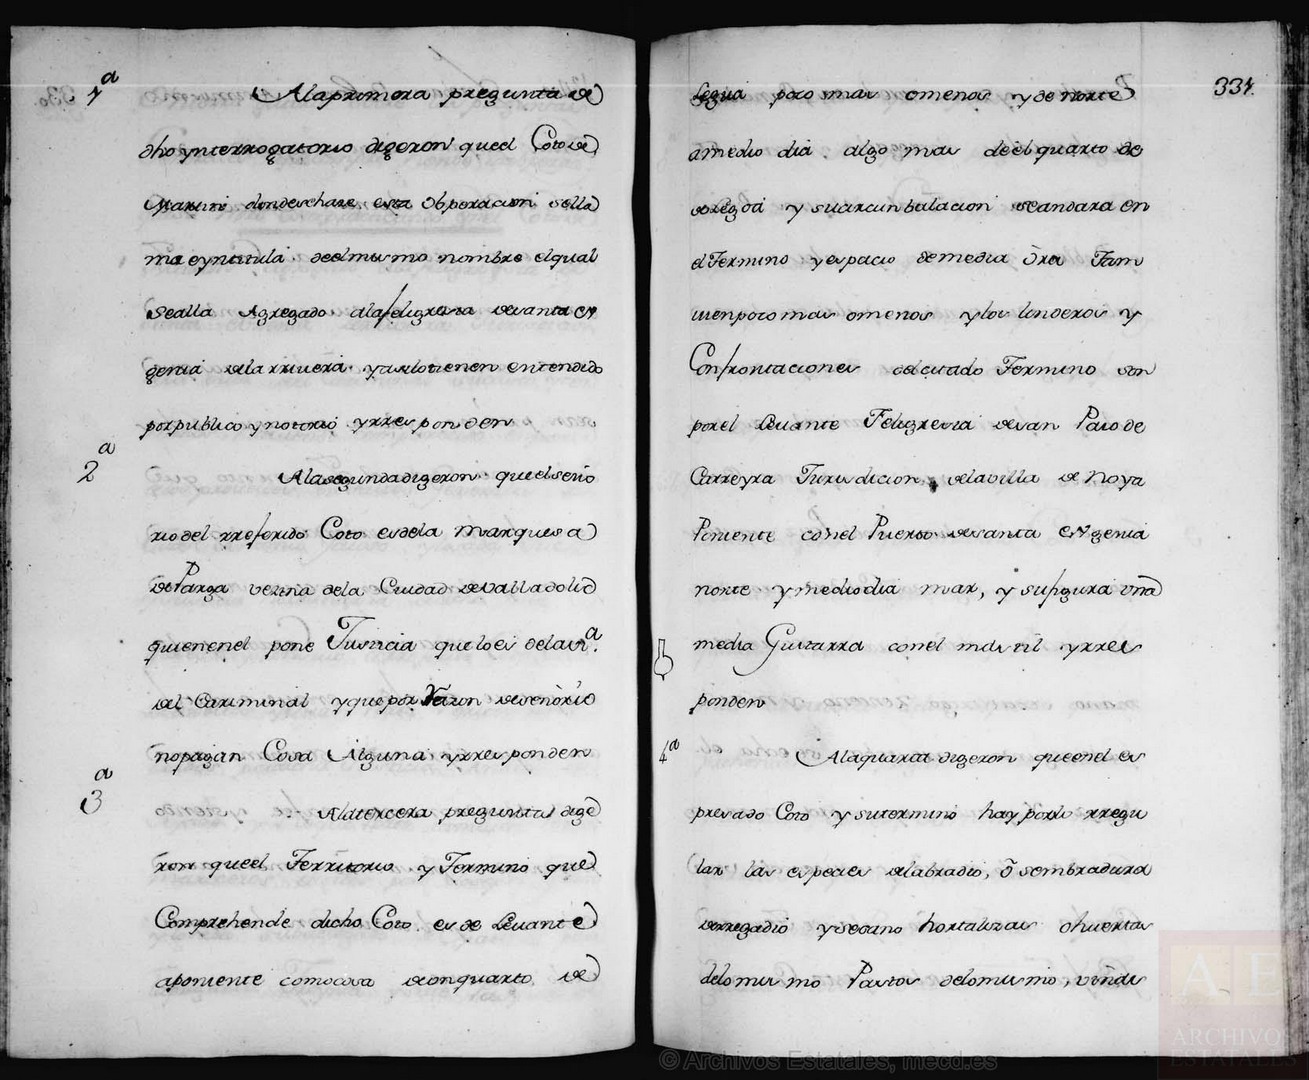 1ª A la primera pregunta de
dho ynterrogatorio digeron que el Coto de
donde se hace esta Obperacion se lla
ma e yntitula de el mismo nombre el qual
se alla Agregado a la feligresia de santa eu
genia de la rriveira y asi lo tienen entendido
por publico y notorio y rresponden
2ª A la segunda digeron que el seño
rio del rreferido Coto es de la Marquesa
de Parga vecina de la Ciudad de Valladolid
quien en el pone Justicia que lo es de la
del Cariminal y que por Razon de señorio
no pagan Cosa Alguna y rresponden
3ª A la tercera pregunta dige
ron que el Territorio y Termino que
Comprehende dicho Coto es de Levante
a poniente como cosa de on quarto de
334.
Legua poco mas o menos y de norte
a medio dia algo mas de el quarto de
y su circunbalacion se andara en
el Termino y espacio de media ora Tam
vien poco mas o menos y los linderos y
Confrontaciones del citado Termino son
por el Levante Feligresia de san Paio de
Carreyra Jurisdicion de la villa de Noya
Poniente con el Puerto de santa eugenia
norte y mediodia mar, y su figura vna
media Guitarra con el mastil y rres
ponden
4ª A la quarta digeron que en el es
presado Coto y su termino hay por lo rregu
lar las especies de labradio, o sembradura
de rregadio y secano hortalizas o huertas
de lo mismo Pastos de lo mismo, viñas
© Archivos Estatales, mecd.es
AE
ARCHIVOS
ESTATALES